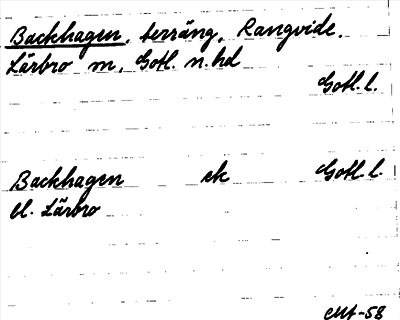 Backhagen, terräng, Rangvide.
Lärbro sn, Gotl. n. hd
Gotl. l.
Backhagen ek Gotl. l.
bl. Lärbro
-58